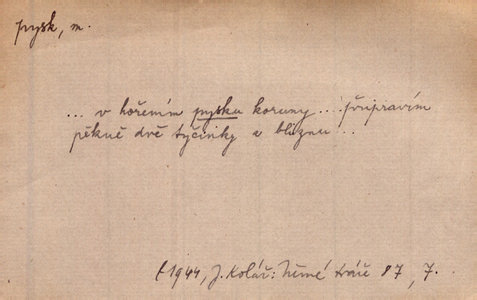 pysk, m.
... v hořením pysku koruny ... připravím
pěkně dvě tyčinky a bliznu ...
1944, J. Kolář: Němé tváře 87, 7.